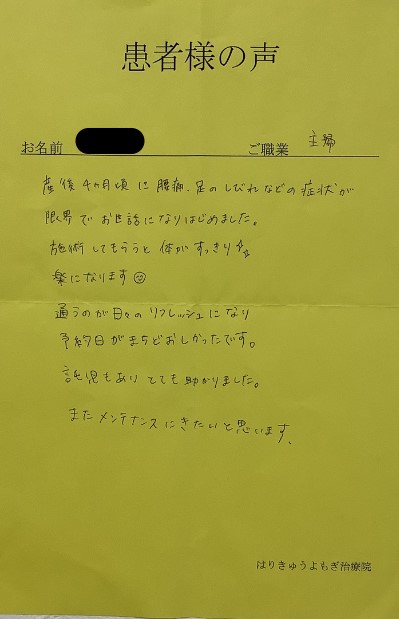 患者様の声
お名前 ご職業 主婦
産後4ヶ月頃に腰痛、足のしびれなどの症状が
限界でお世話になりはじめました。
施術してもらうと体がすっきり✨
楽になります☺
通うのが日々のリフレッシュになり
予約日がまちどおしかったです。
託児もありとても助かりました。
またメンテナンスにきたいと思います、
はりきゅうよもぎ治療院